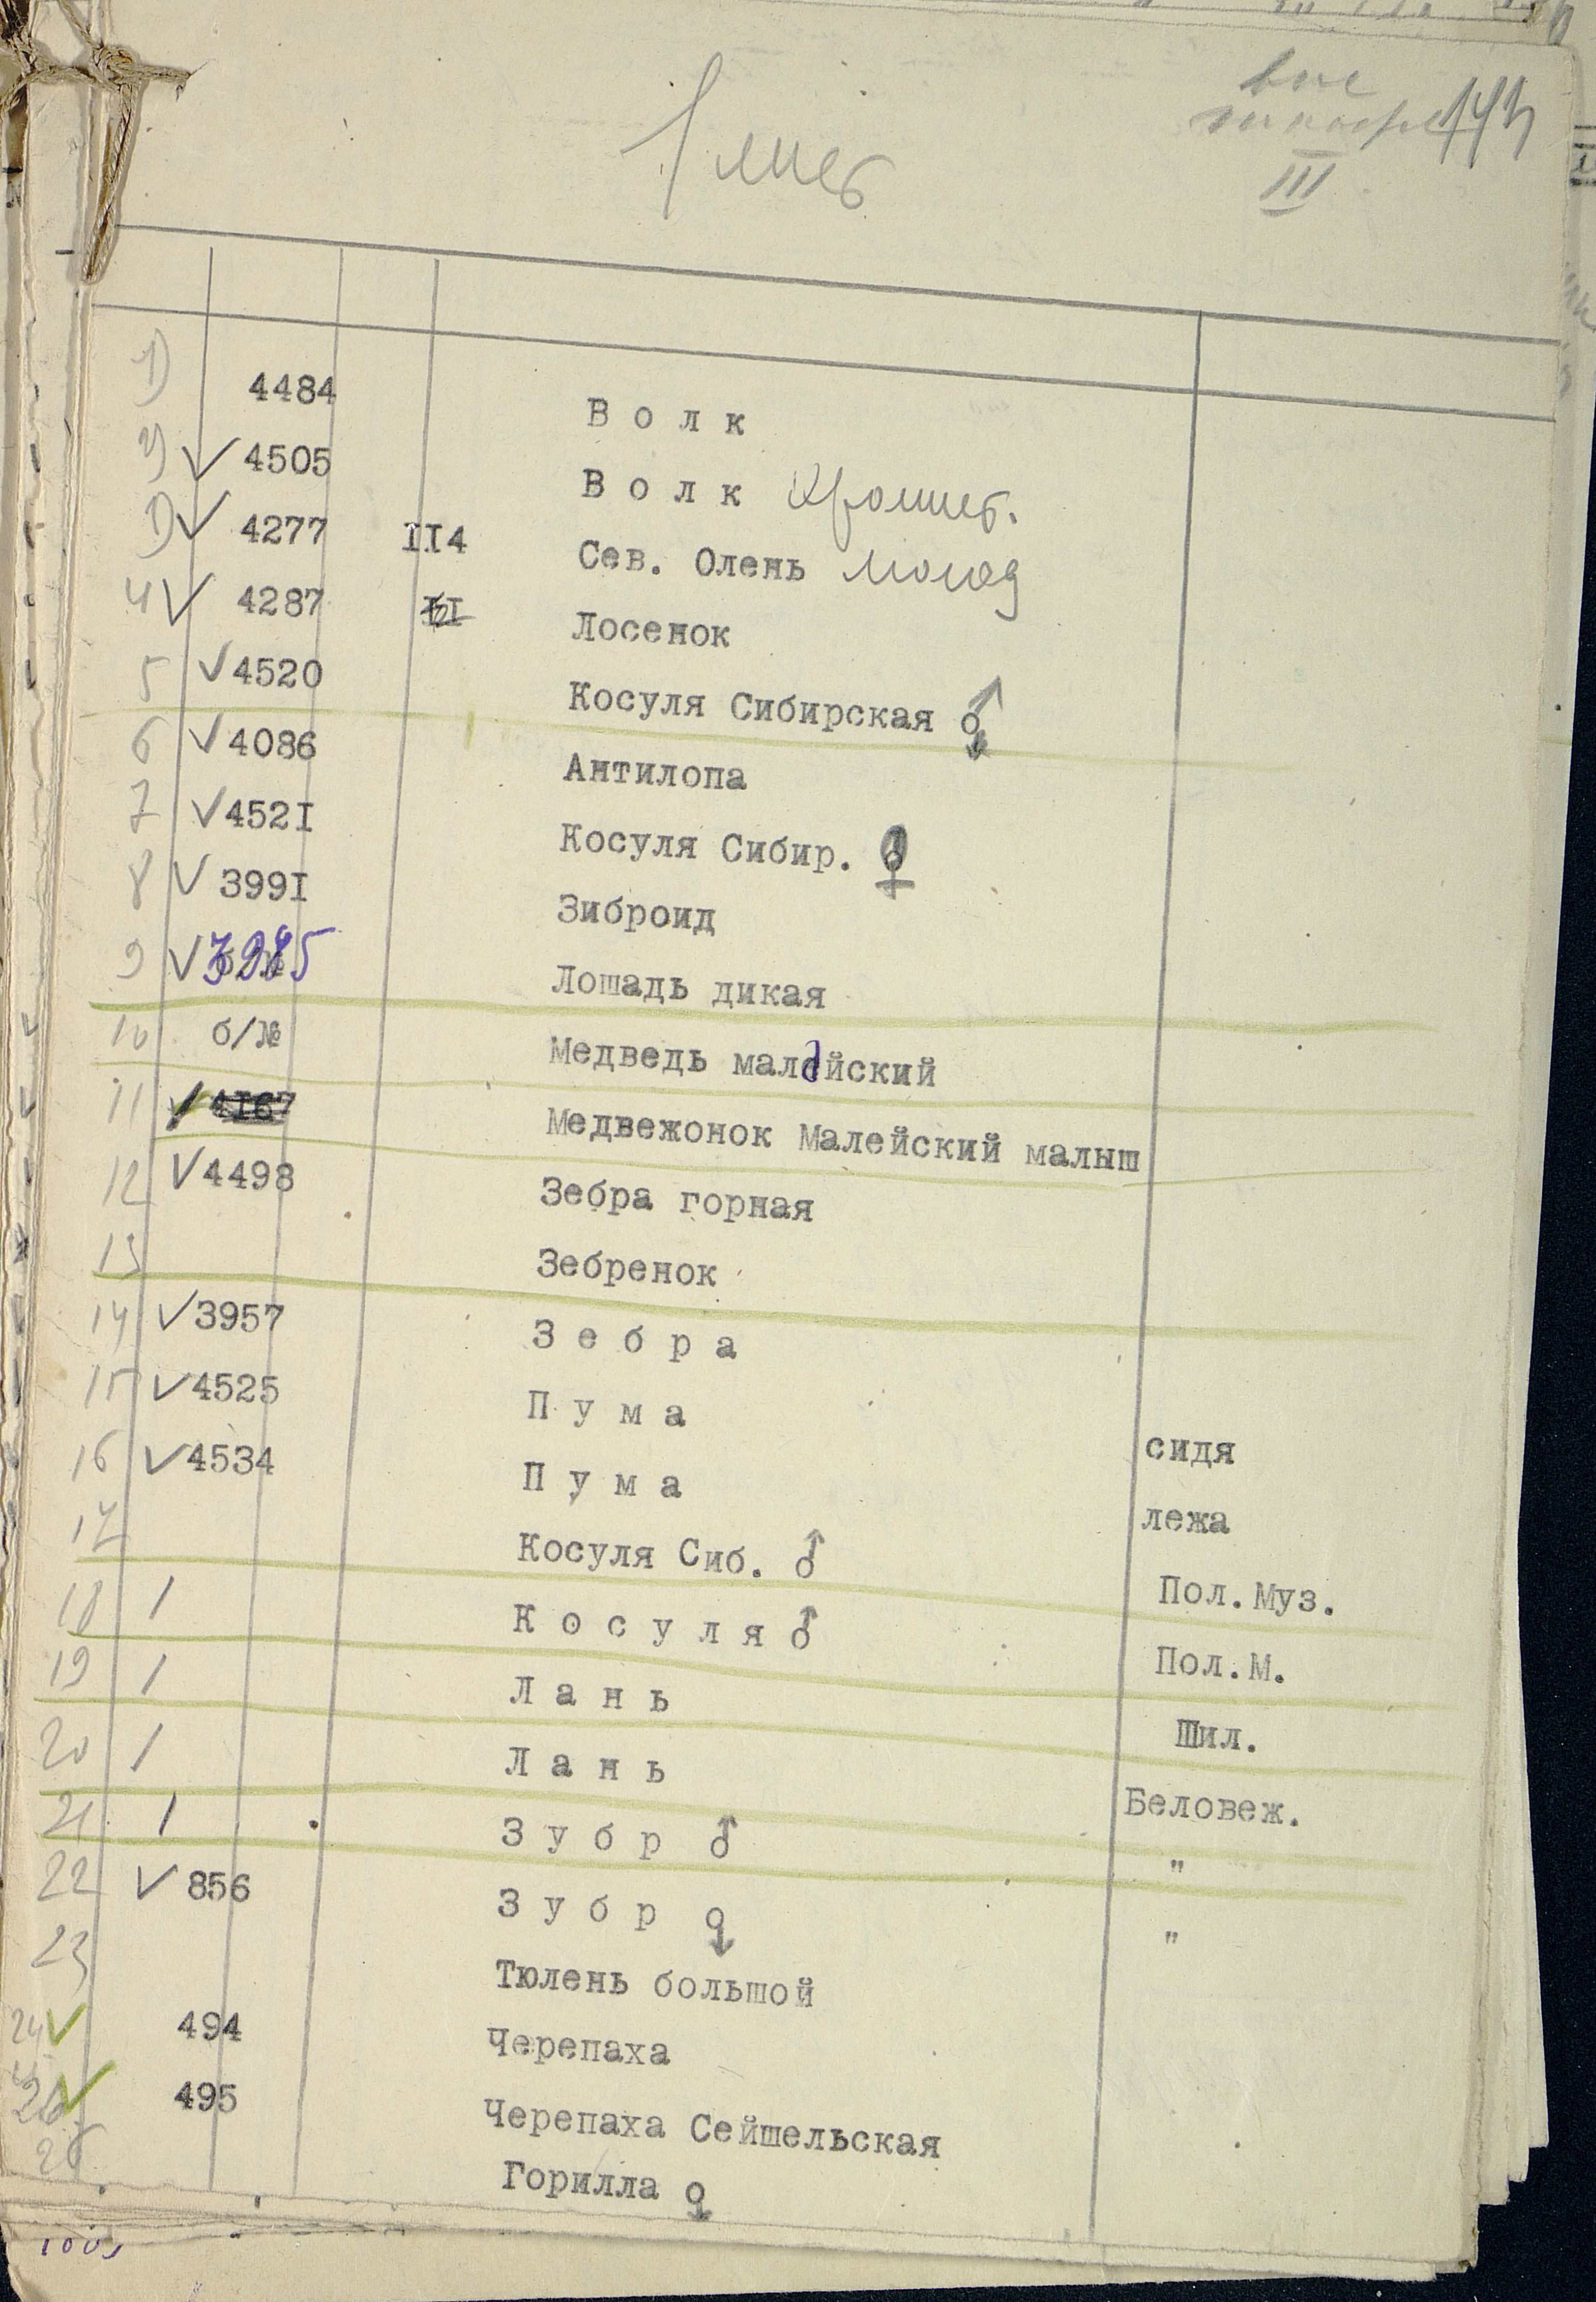 вне
III
1) 4484 Волк
2) ✓ 4505 Волк
3) ✓ 4277 II4 Сев. Олень молод
4 ✓ 4287 Лосенок
5 ✓ 4520 Косуля Сибирская ♂
6 ✓ 4086 Антилопа
7 ✓ 452I Косуля Сибир. ♀
8 ✓ 399I Зиброид
9 ✓ Лошадь дикая
10 б/№ Медведь малайский
11 ✓ 4I67 Медвежонок Малейский малыш
12 ✓ 4498 Зебра горная
13 Зебренок
14 ✓ 3957 Зебра
15 ✓ 4525 Пума сидя
16 ✓ 4534 Пума лежа
17 Косуля Сиб. ♂ Пол.Муз.
18 / Косуля ♂ Пол.М.
19 / Лань Шил.
20 / Лань Беловеж.
21 / Зубр ♂ "
22 ✓ 856 Зубр ♀ "
23 Тюлень большой
24 ✓ 494 Черепаха
✓ 495 Черепаха Сейшельская
26 Горилла ♀